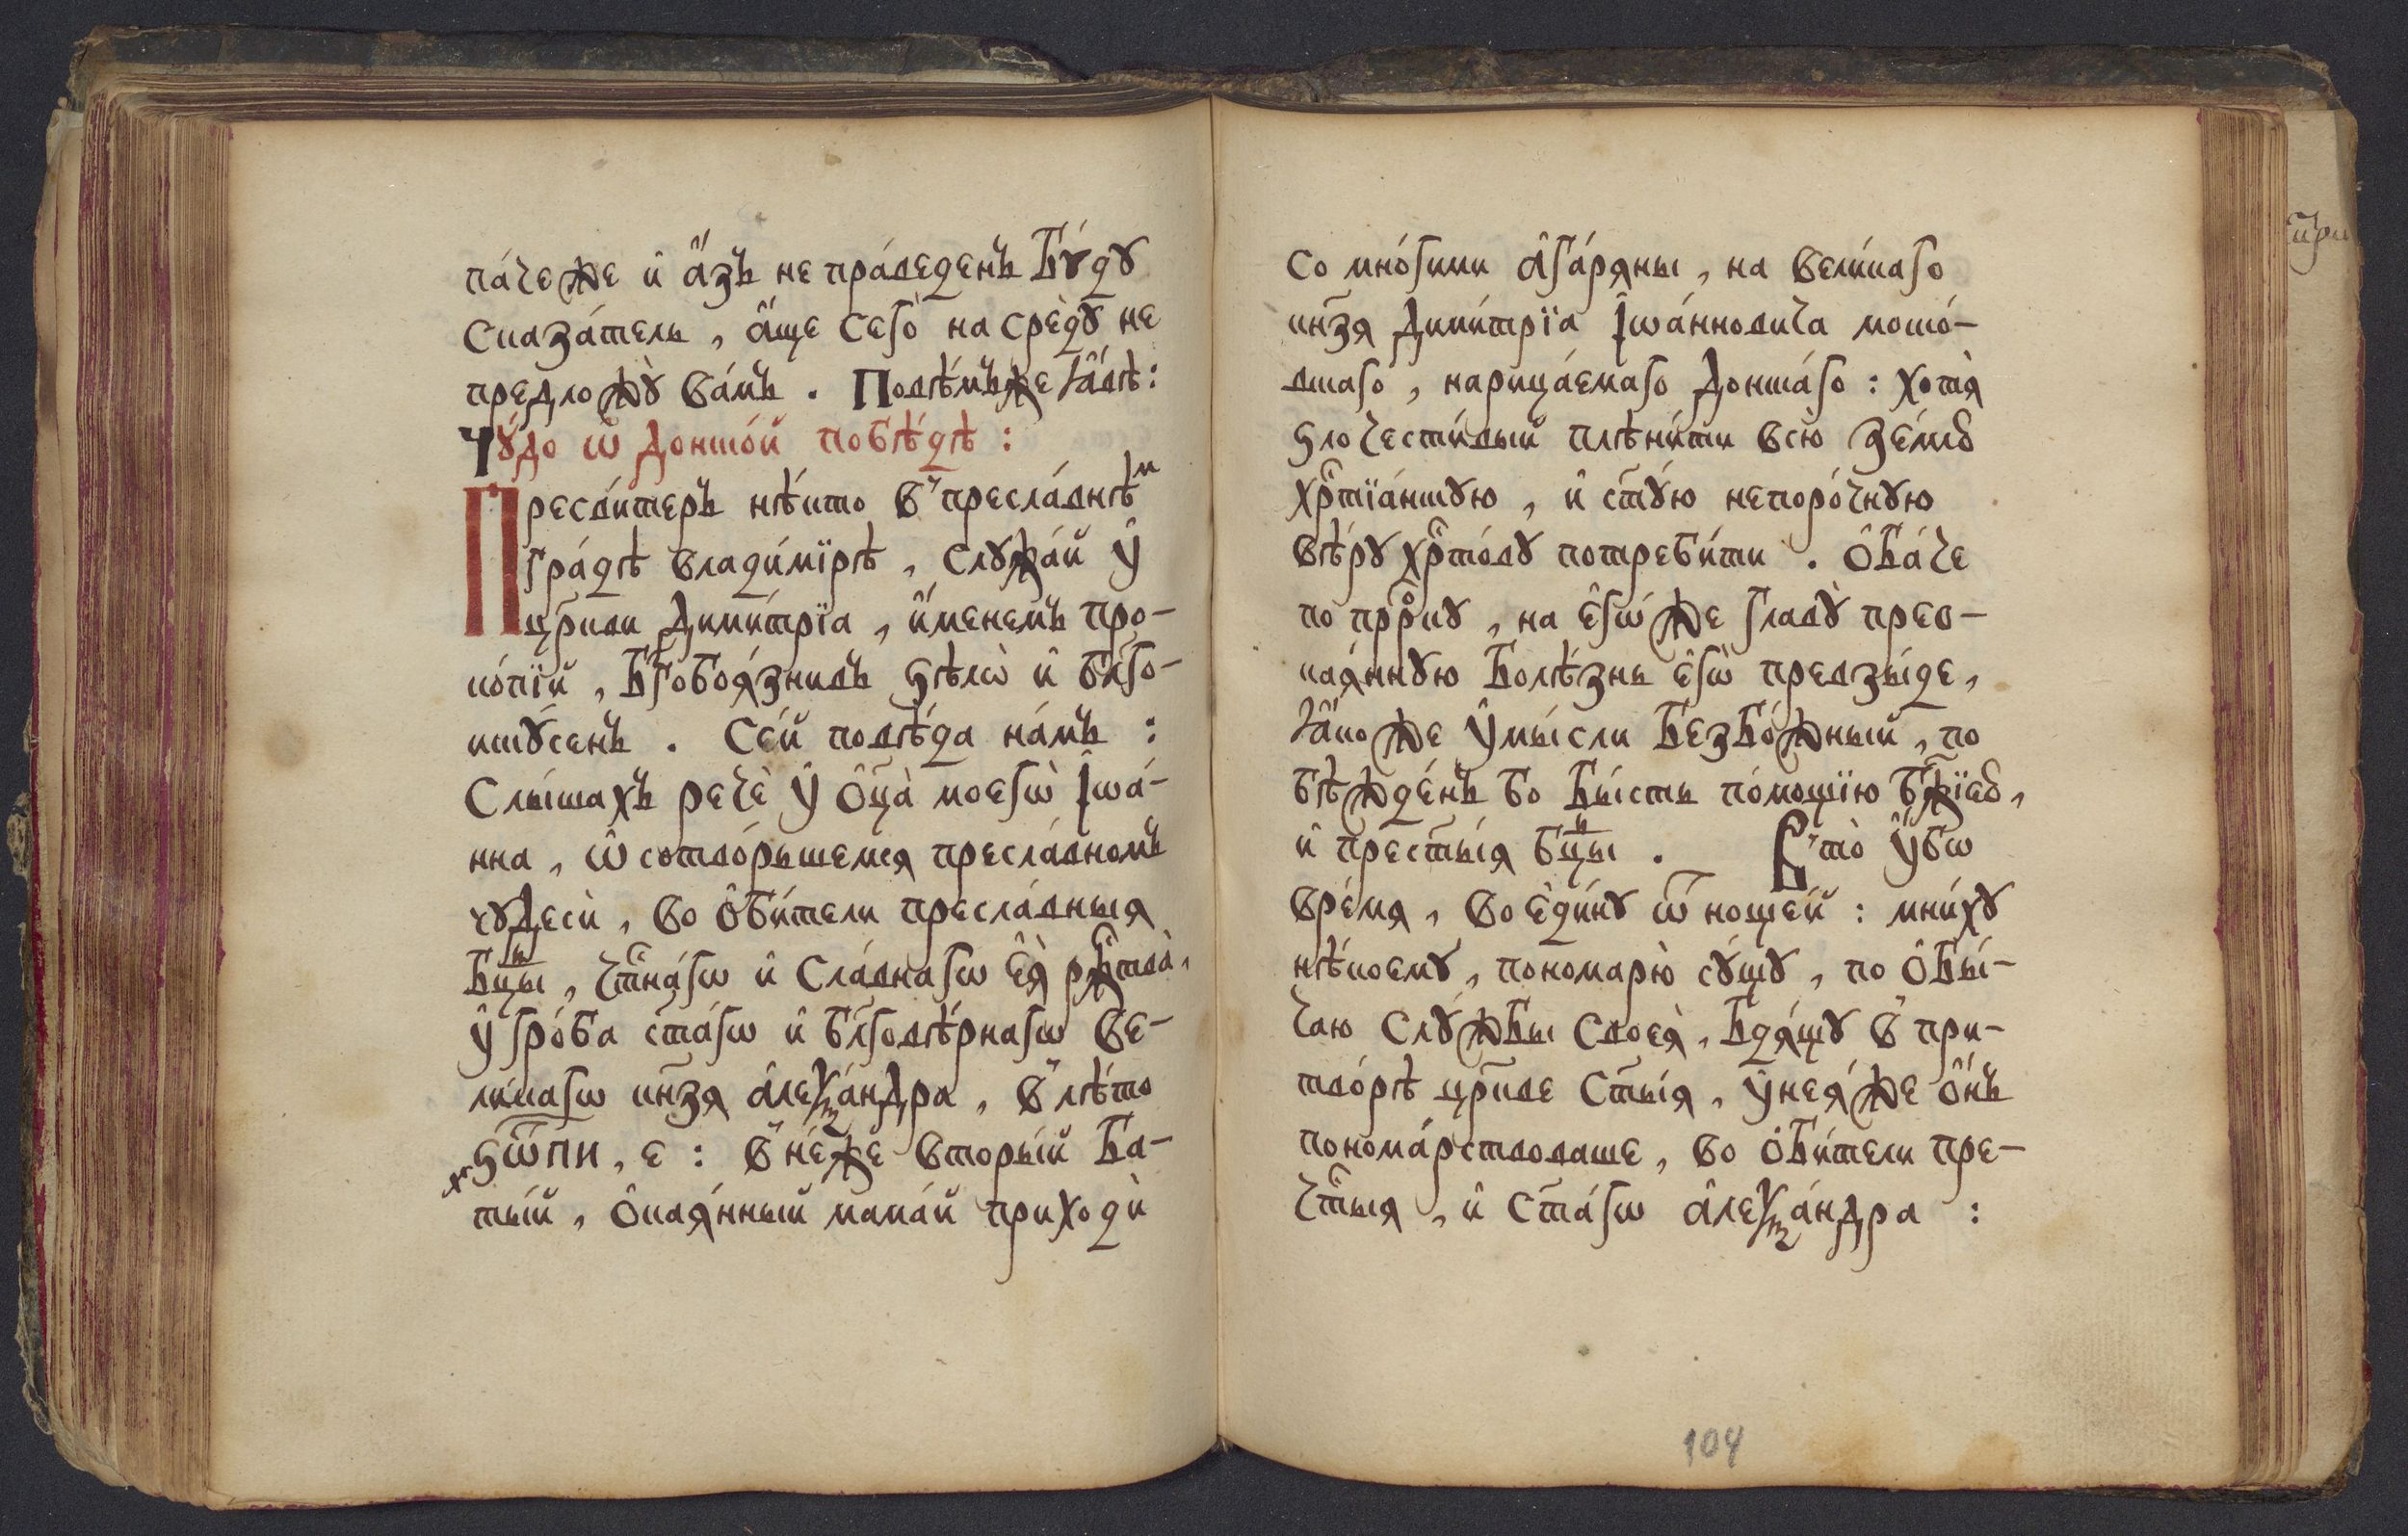 па́чеже и҆ а҆́зъ не пра́веденъ бꙋ́дꙋ
сказа́тель, а҆́ще сегѡ̀ на средꙋ̀ не
предложꙋ̀ ва́мъ. Повѣ́мъже ꙗ҆́вѣ:
Чꙋ́до ѡ҆ донско́й побѣ́дѣ:
Пресви́теръ нѣ́кто в̾ пресла́внѣм
гра́дѣ влади́мїрѣ, слꙋжа́й ᲂу҆
цр҃кви Дими́трїа, и҆́менемъ про-
ко́пїй, бг҃обоя́зникъ ѕѣлѡ̀ и҆ бл҃го-
искꙋ́сенъ. Се́й повѣ́да на́мъ:
Слы́шахъ речѐ ᲂу҆ ѻ҆ц҃а̀ моегѡ̀ І҆ѡа́-
нна, ѡ҆ сотво́рьшемся пресла́вномъ
чꙋдесѝ, во ѻ҆би́тели пресла́вныя
Бц҃ы, чⷭ҇тна́гѡ и҆ сла́внагѡ є҆я̀ ржⷭ҇тва̀,
ᲂу҆ гро́ба ст҃а́гѡ и҆ бл҃говѣ́рнагѡ ве-
ли́кагѡ кн҃зя а҆леѯа́ндра, в̾ лѣ́то
ѕѿпи, є: в̾ не́же вторы́й Ба-
ты́й, ѻ҆кая́нный мама́й приходѝ
со мно́гими а҆га́ряны, на вели́каго
кн҃зя Дими́трїа І҆ѡа́нновича моско́-
вскаго, нарица́емаго Донска́го: хотя̀
ѕлочести́вый плѣни́ти всю̀ зе́млю
хрⷭ҇тїа́нскꙋю, и҆ ст҃ꙋ́ю непоро́чнꙋю
вѣ́рꙋ хрⷭ҇то́вꙋ потреби́ти. Ѻ҆ба́че
по прⷪ҇ркꙋ, на є҆гѡ́же главꙋ̀ прео-
кая́ннꙋю болѣ́знь є҆гѡ̀ превзы́де,
ꙗ҆́коже ᲂу҆мы́сли безбо́жный, по
бѣжде́нъ бо бы́сть по́мощїю бж҃їею,
и҆ прест҃ы́я бц҃ы. В̾ то̀ ᲂу҆́бѡ
вре́мя, во є҆ди́нꙋ ѿ ноще́й: мни́хꙋ
нѣ́коемꙋ, пономарю̀ сꙋ́щꙋ, по ѻ҆бы́-
чаю слꙋ́жбы своея̀, бдя́щꙋ в̾ при-
тво́рѣ цр҃кве ст҃ы́я, ᲂу҆ нея́же ѻ҆́нъ
понома́рствоваше, во ѻ҆би́тели пре-
чⷭ҇тыя, и҆ ст҃а́гѡ а҆леѯа́ндра:
104